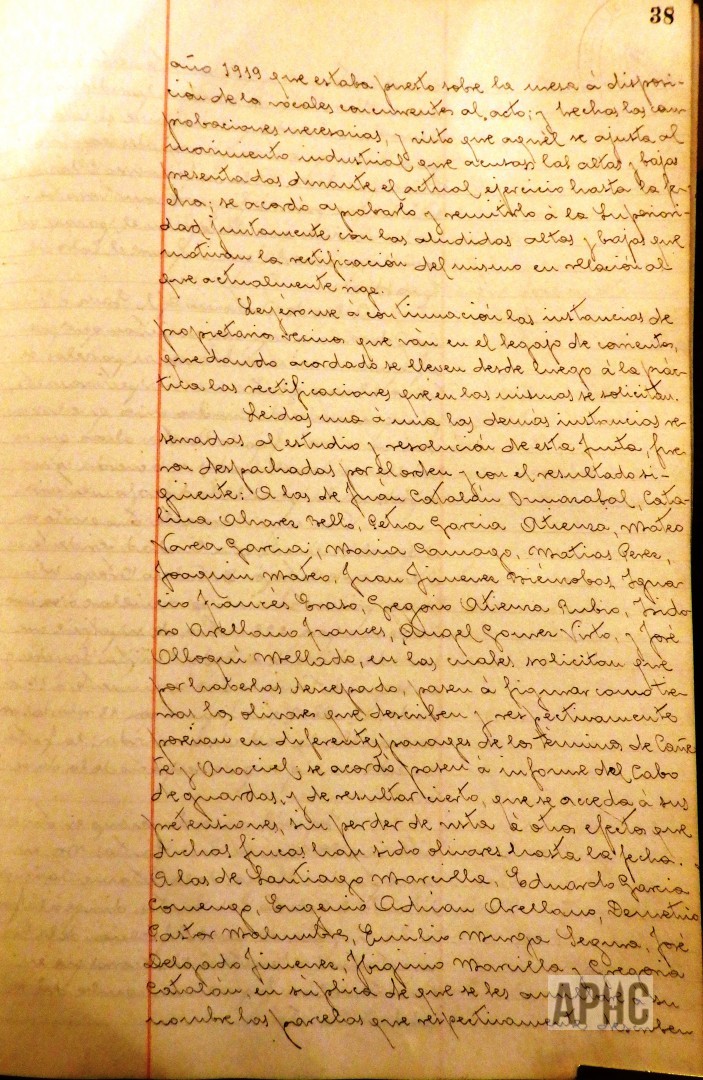 38
año 1919 que estaba puesto sobre la mesa á disposi-
ción de los vocales concurrentes al acto; y hechas las com-
probaciones necesarias, y visto que aquél se ajusta al
movimiento industrial que acusan las altas y bajas
presentadas durante el actual ejercicio hasta la fe-
cha; se acordó aprobarlo y remitirlo á la Superiori-
dad juntamente con las aludidas altas y bajas que
motivan la rectificación del mismo en relación al
que actualmente rige.
Leyéronse á continuación las instancias de
propietarios vecinos que ván en el legajo de corrientes,
quedando acordado se lleven desde luego á la prác-
tica las rectificaciones que en las mismas se solicitan.
Leidas una á una las demás instancias re-
servadas al estudio y resolución de esta Junta, fue-
ron despachadas por el orden y con el resultado si-
guiente: A las de Juan Catalán, Cata-
lina Alvarez Vello, Petra Garcia Atienza, Mateo
Varea Garcia, Maria Camago, Matias Perez,
Joaquin Mateo, Juan Jimenez, Igna-
cio Francés Eraso, Gregorio Atienza Rubio, Isido-
ro Arellano Frances, Angel Gomez Virto, y José
Olloqui Mellado, en las cuales solicitan que
por haberlas descepado, pasen á figurar como tie-
rras los olivares que describen y respectivamente
poseian en diferentes parages de los términos de Cañe-
te y Araciel; se acordó pasen á informe del Cabo
de guardas, y de resultar cierto, que se acceda á sus
pretensiones, sin perder de vista á otros efectos que
dichas fincas han sido olivares hasta la fecha.
A las de Santiago Marcilla, Eduardo Garcia
Comengo, Eugenio Adrian Arellano, Demetrio
Pastor Malumbres, Emilio Murga Segura, José
Delgado Jimenez, Higinio Marcilla Gregoria
Catalán, en súplica de que se les á su
nombre las parcelas que respectivamente describen
APHC